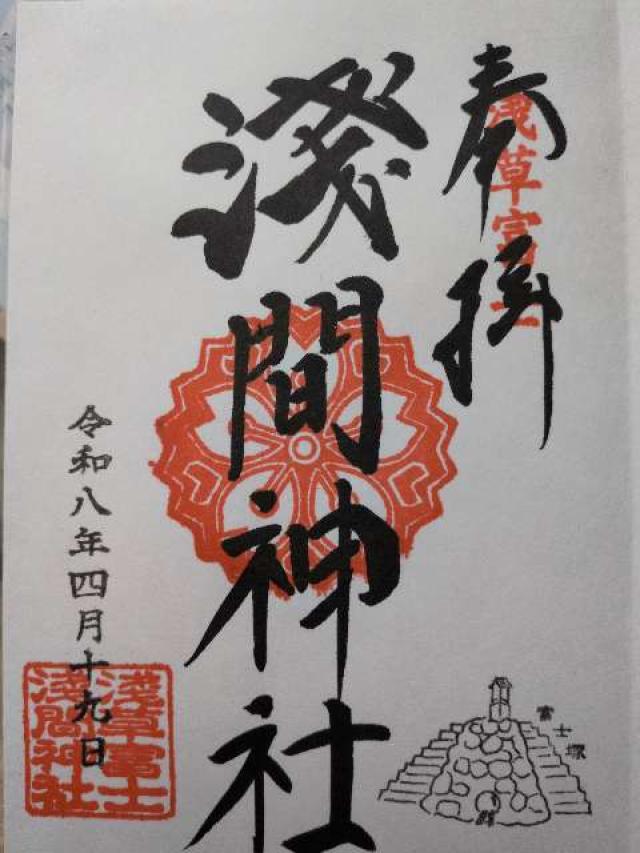 奉拝
浅草富士
淺間神社
令和八年四月十九日
淺草富士
淺間神社
富士塚